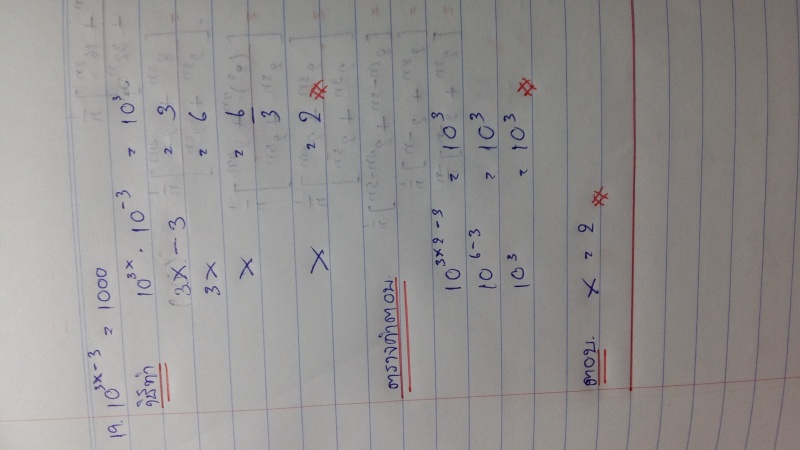 19. 10^{3x-3} = 1000
วิธีทำ 10^{3x} · 10^{-3} = 10^3
3x - 3 = 3
3x = 6
x = 6/3
x = 2
ตรวจคำตอบ
10^{3×2-3} = 10^3
10^{6-3} = 10^3
10^3 = 10^3
ตอบ x = 2